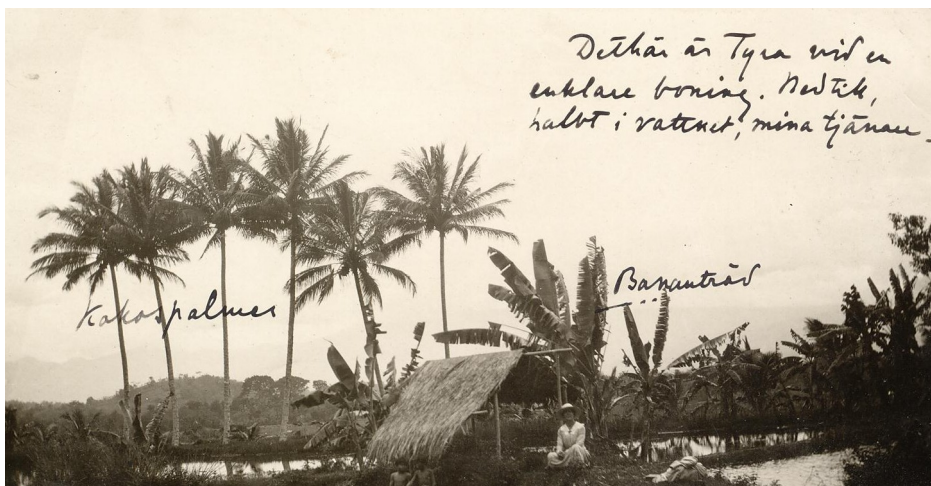 Det här är Tyra vid en
enklare boning. Nedtill,
halvt i vattnet, mina tjänare.
Bananträd
Kokospalmer